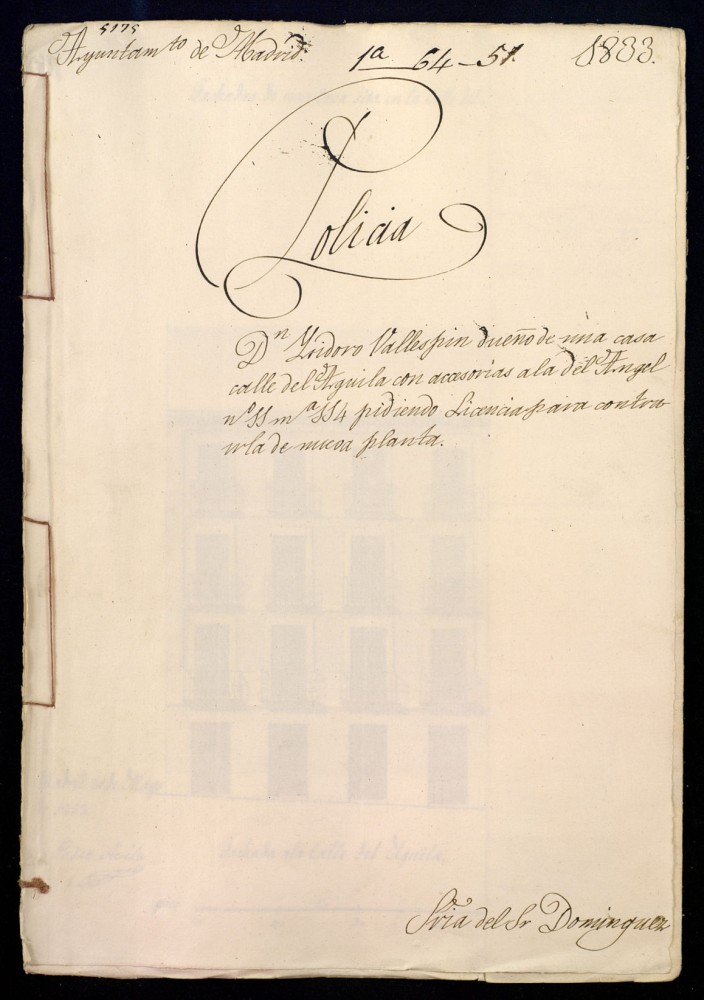 5175
Ayuntam.to de Madrid.
1a 64-51
1833.
Policia
Dn Ysidoro Vallespin dueño de una casa
calle del Aguila con accesorias a la del Angel
nº 11 m.a 114 pidiendo Licencia para contru
irla de nueva planta.
Fachada a la Calle del Aguila.
Sria del Sr Dominguez